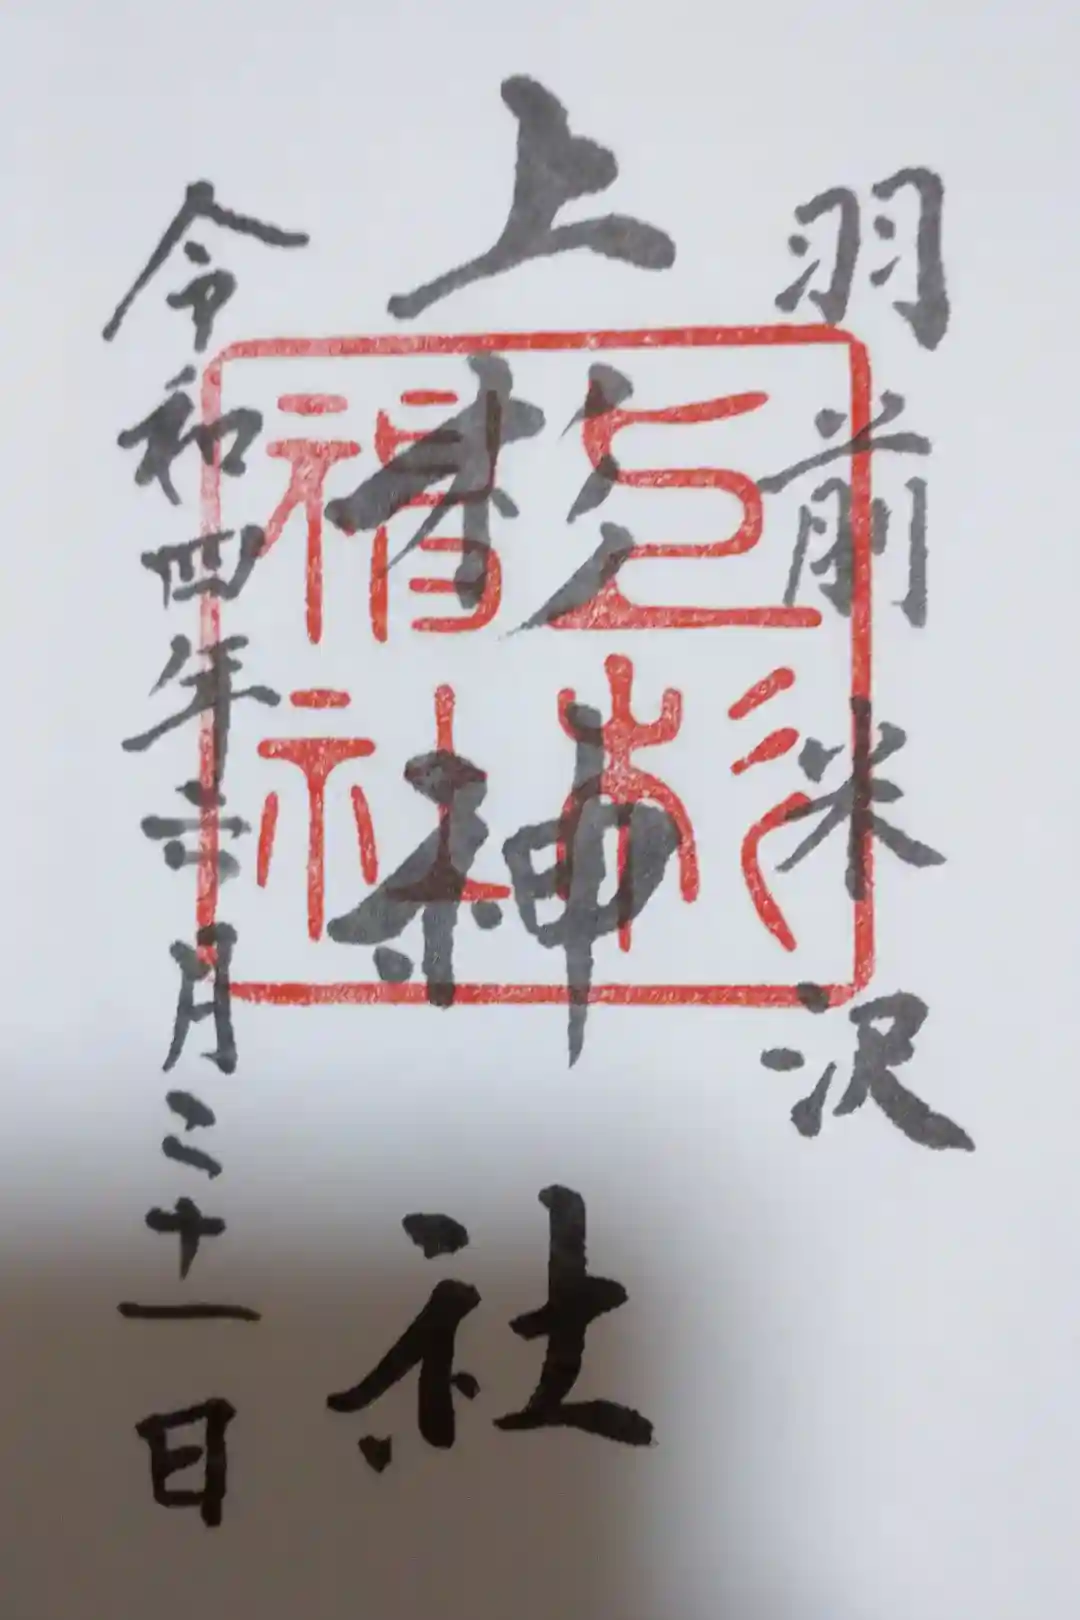 羽前米沢
上杉神社
令和四年 月三十一日
上杉
神社